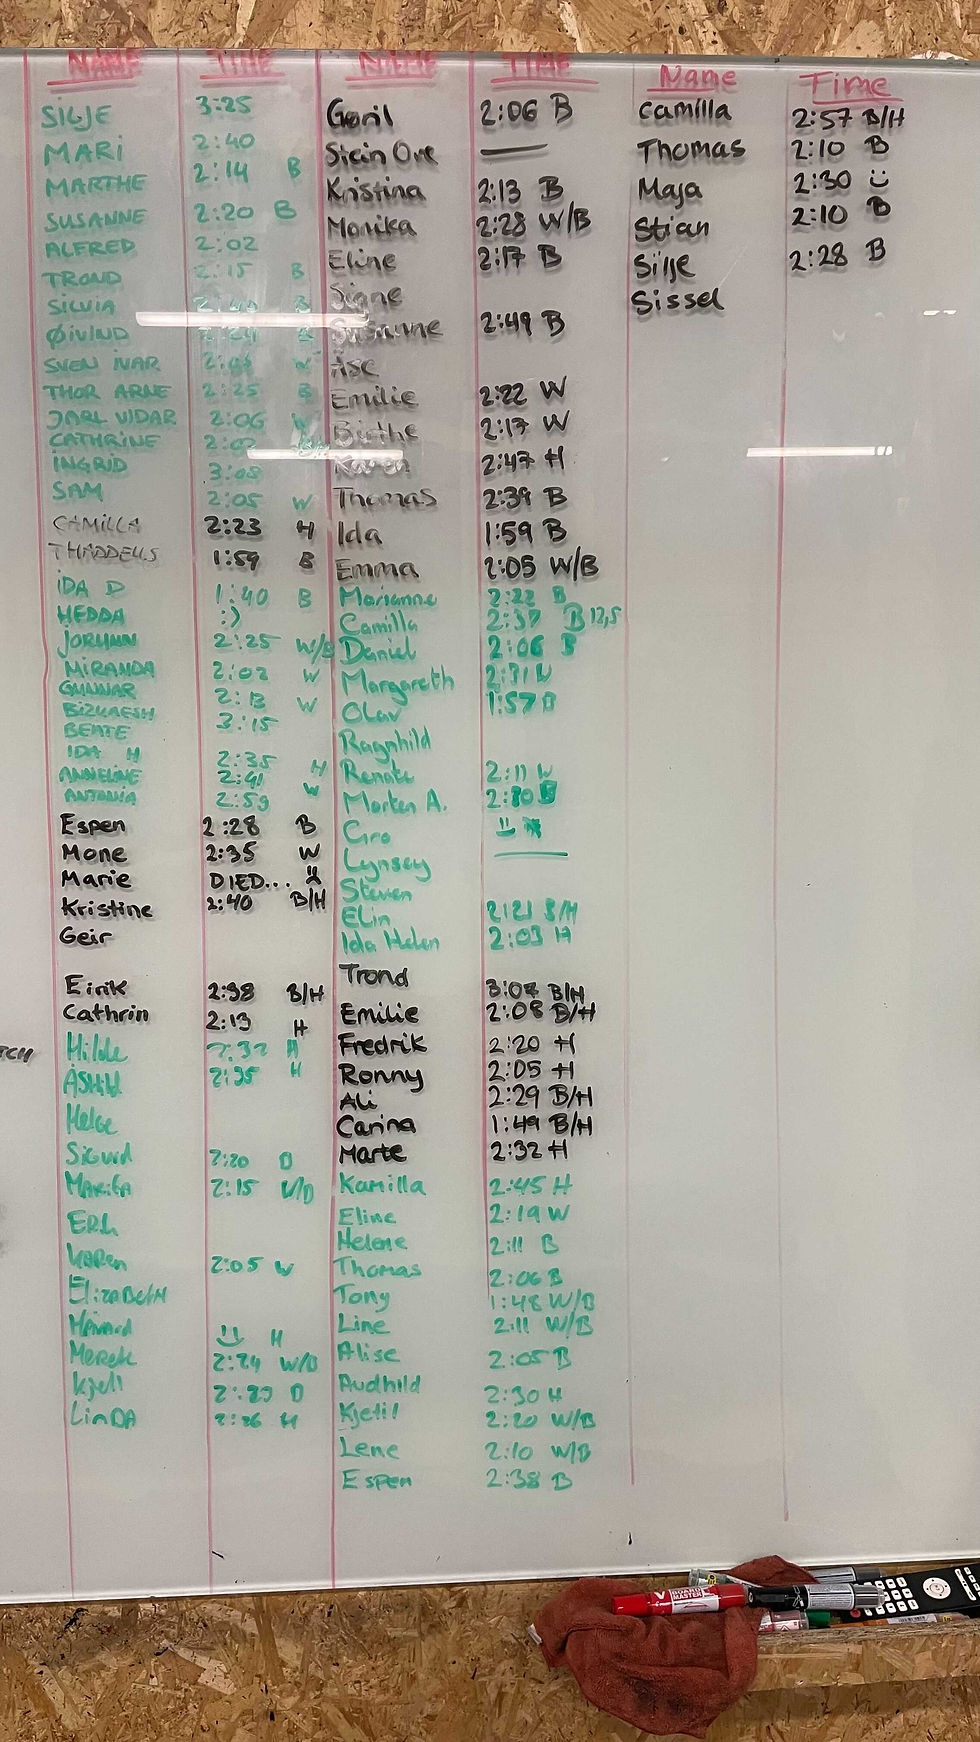 NAME TIME
SILJE 3:25
MARI 2:40
MARTHE 2:14 B
SUSANNE 2:20 B
ALFRED 2:02
TROND 2:15 B
SILVIA B
ØIVIND
SVEN IVAR W
THOR ARNE 2:25 B
JARL VIDAR 2:06 W
CATHRINE 2:02
INGRID 3:08
SAM 2:05 W
CAMILLA 2:23 H
THADDEUS 1:59 B
IDA D 1:40 B
HEDDA :)
JORUNN 2:25 W/B
MIRANDA 2:02 W
GUNNAR 2:13 W
3:15
BENTE
IDA H 2:35 H
ANNELINE 2:41 W
ANTONIA 2:59
Espen 2:28 B
Mone 2:35 W
Marie DIED...
Kristine 2:40 B/H
Geir
Eirik 2:38 B/H
Cathrin 2:13 H
TCH
Hilde 2:32 H
2:35 H
Helge
Sigurd 2:20 B
2:15 W/B
Karen 2:05 W
ElizaBeth
Håvard H
2:24 W/B
Kjell 2:29 B
LinDA 2:26 H
NAME TIME
Goril 2:06 B
Stein Ove
Kristina 2:13 B
Monika 2:28 W/B
Eline 2:17 B
Signe
Susanne 2:49 B
Åse
Emilie 2:22 W
Birthe 2:17 W
Karen 2:47 H
Thomas 2:39 B
Ida 1:59 B
Emma 2:05 W/B
Marianne 2:22 B
Camilla 2:37 B 12,5
Daniel 2:06 B
Margareth 2:31 W
Olav 1:57 B
Ragnhild
Renate 2:11 W
Morten A.
Gro
Lynsey
Steven
ELin 2:21 B/H
Ida Helen 2:03 H
Trond 3:07 B/H
Emilie 2:08 B/H
Fredrik 2:20 H
Ronny 2:05 H
Ali 2:29 B/H
Carina 1:49 B/H
Marte 2:32 H
Kamilla 2:45 H
Eline 2:19 W
Helene 2:11 B
Thomas 2:06 B
Tony 1:48 W/B
Line 2:11 W/B
Alise 2:05 B
Audhild 2:30 H
Kjetil 2:20 W/B
Lene 2:10 W/B
Espen 2:38 B
Name Time
Camilla 2:57 B/H
Thomas 2:10 B
Maja 2:30
Stian 2:10 B
Silje 2:28 B
Sissel
BOARD MASTER